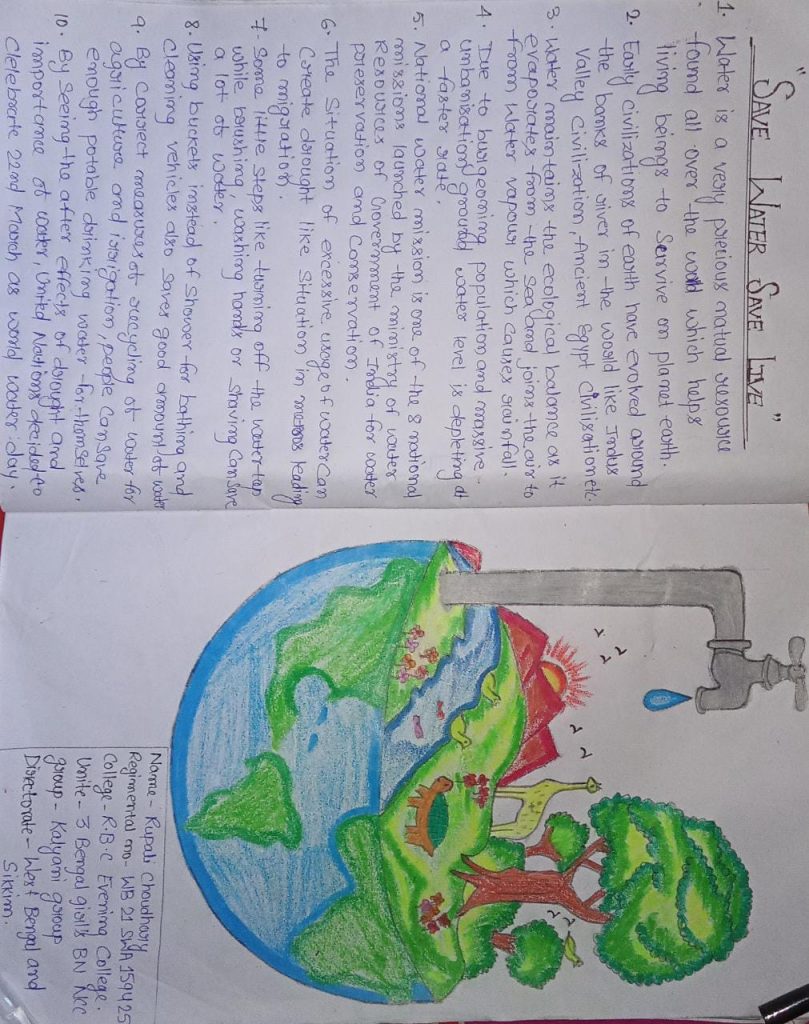 "SAVE WATER SAVE LIVE"
1. Water is a very precious natural resource
found all over the world which helps
living beings to survive on planet earth.
2. Early civilizations of earth have evolved around
the banks of river in the would like Indus
Valley Civilization, Ancient Egypt Civilisation etc.
3. Water maintains the ecological balance as it
evaporates from the sea and joins the air to
from water vapour which causes rainfall.
4. Due to burgeoning population and massive
urbanisation ground water level is depleting at
a faster rate.
5. National water mission is one of the 8 national
missions launched by the ministry of water
Resources of Government of India for water
preservation and Conservation.
6. The Situation of excessive usage of water Can
Create drought like Situation in metros leading
to migration.
7. Some little steps like turning off the water tap
while brushing, washing hands or shaving Can Save
a lot of water.
8. Using buckets instead of shower for bathing and
cleaning vehicles also saves good amount of water
9. By correct measures of recycling of water for
agriculture and irrigation, people Can Save
enough potable drinking water for themselves.
10. By Seeing the after effects of drought and
importance of water, United Nations decided to
Celebrate 22nd March as world water day.
Name - Rupali Choudhary
Regimental no - WB 21 SWA 159425
College - R.B.C Evening College.
Unite - 3 Bengal girls BN Ncc
group - Kalyani group
Directorate - West Bengal and
Sikkim.